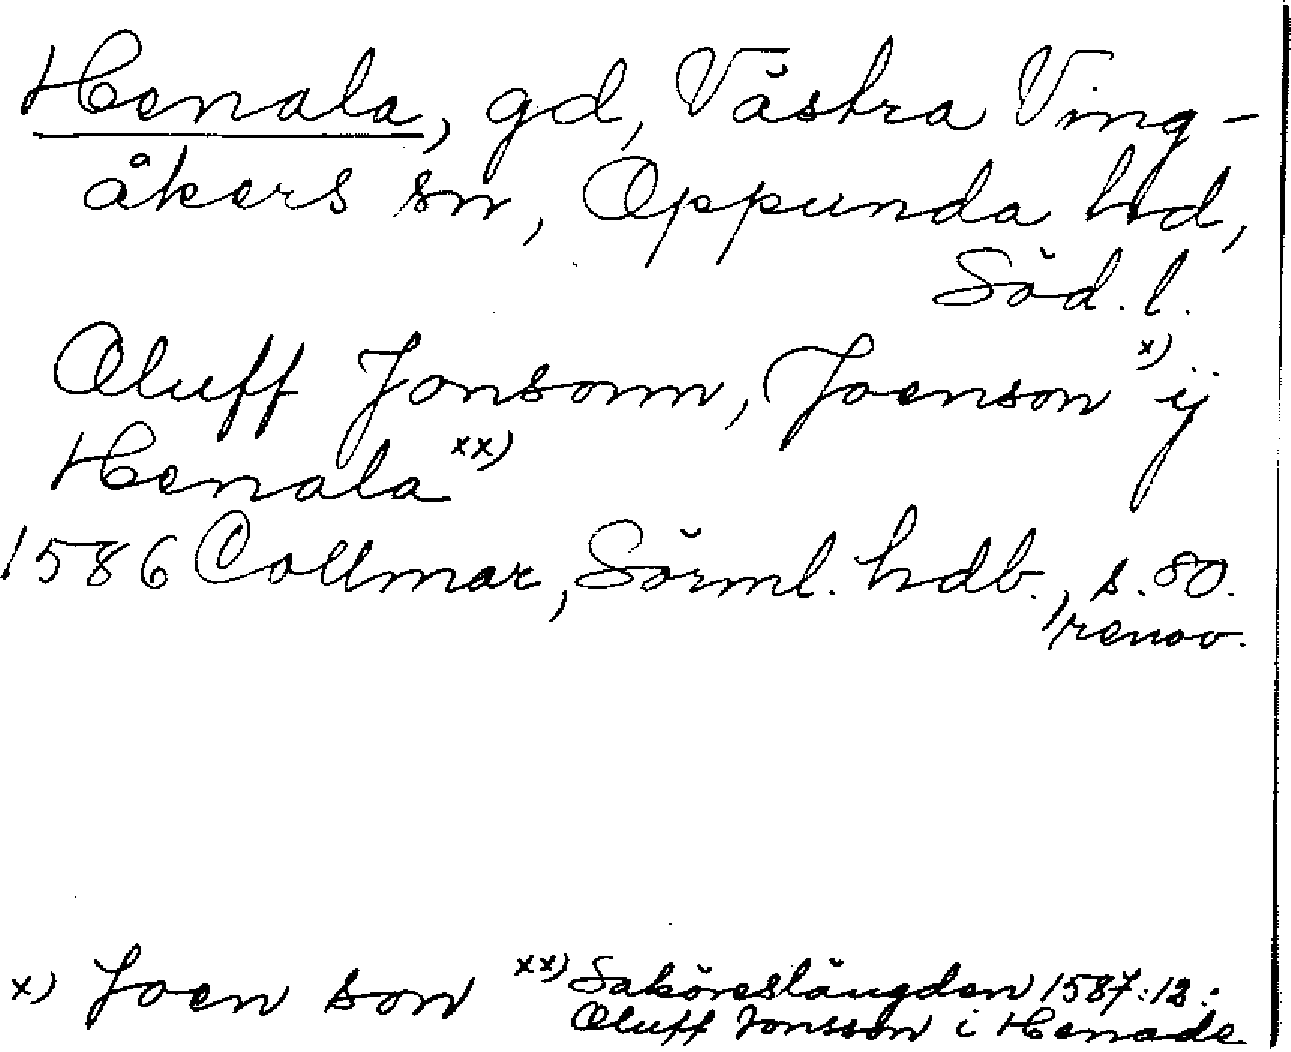 Henala, gd, Västra Ving-
åkers sn, Oppunda hd,
Söd. l.
Oluff Jonsonn, Joenson x) ij
Henala xx)
1586 Collmar, Sörml. hdb., s. 80.
renov.
x) Joen son xx) Saköreslängden 1587:12:
Oluff Jonsson i Henade